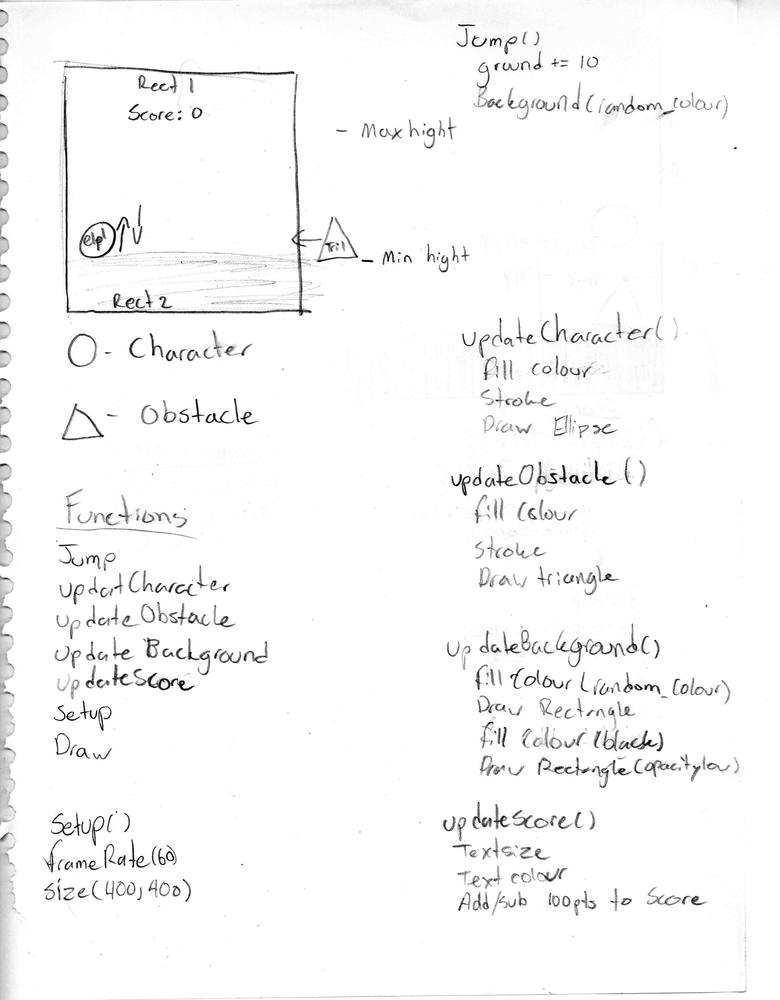 Rect 1
Score: 0
elp1
Tri1
Rect 2
- Max hight
- Min hight
O - Character
△ - Obstacle
Functions
Jump
updatCharacter
updateObstacle
update Background
updateScore
Setup
Draw
Setup()
frameRate(60)
size(400,400)
Jump()
ground += 10
Background(random_colour)
updateCharacter()
fill colour
Stroke
Draw Ellipse
updateObstacle()
fill Colour
Stroke
Draw triangle
updateBackground()
fill Colour (random_Colour)
Draw Rectangle
fill Colour (black)
Draw Rectangle(opacitylow)
updateScore()
Textsize
Text colour
Add/sub 100pts to Score